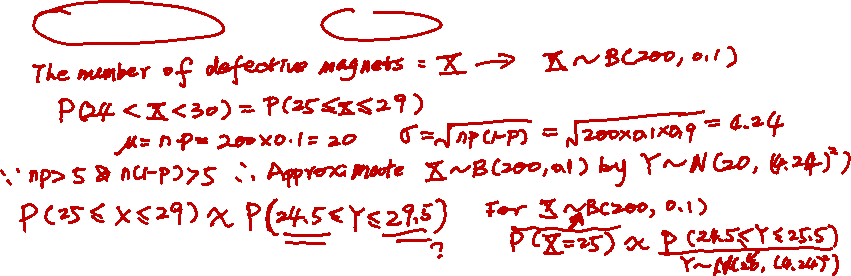 The number of defective magnets = X → X ~ B(200, 0.1)
P(24 < X < 30) = P(25 ≤ X ≤ 29)
μ = n p = 200 × 0.1 = 20 σ = √np(1-p) = √200×0.1×0.9 = 4.24
∵ np > 5 & n(1-p) > 5 ∴ Approximate X ~ B(200, 0.1) by Y ~ N(20, (4.24)²)
P(25 ≤ X ≤ 29) ∝ P(24.5 ≤ Y ≤ 29.5) ?
For X ~ B(200, 0.1)
P(X = 25) ∝ P(24.5 ≤ Y ≤ 25.5)
Y ~ N(20, (4.24)²)